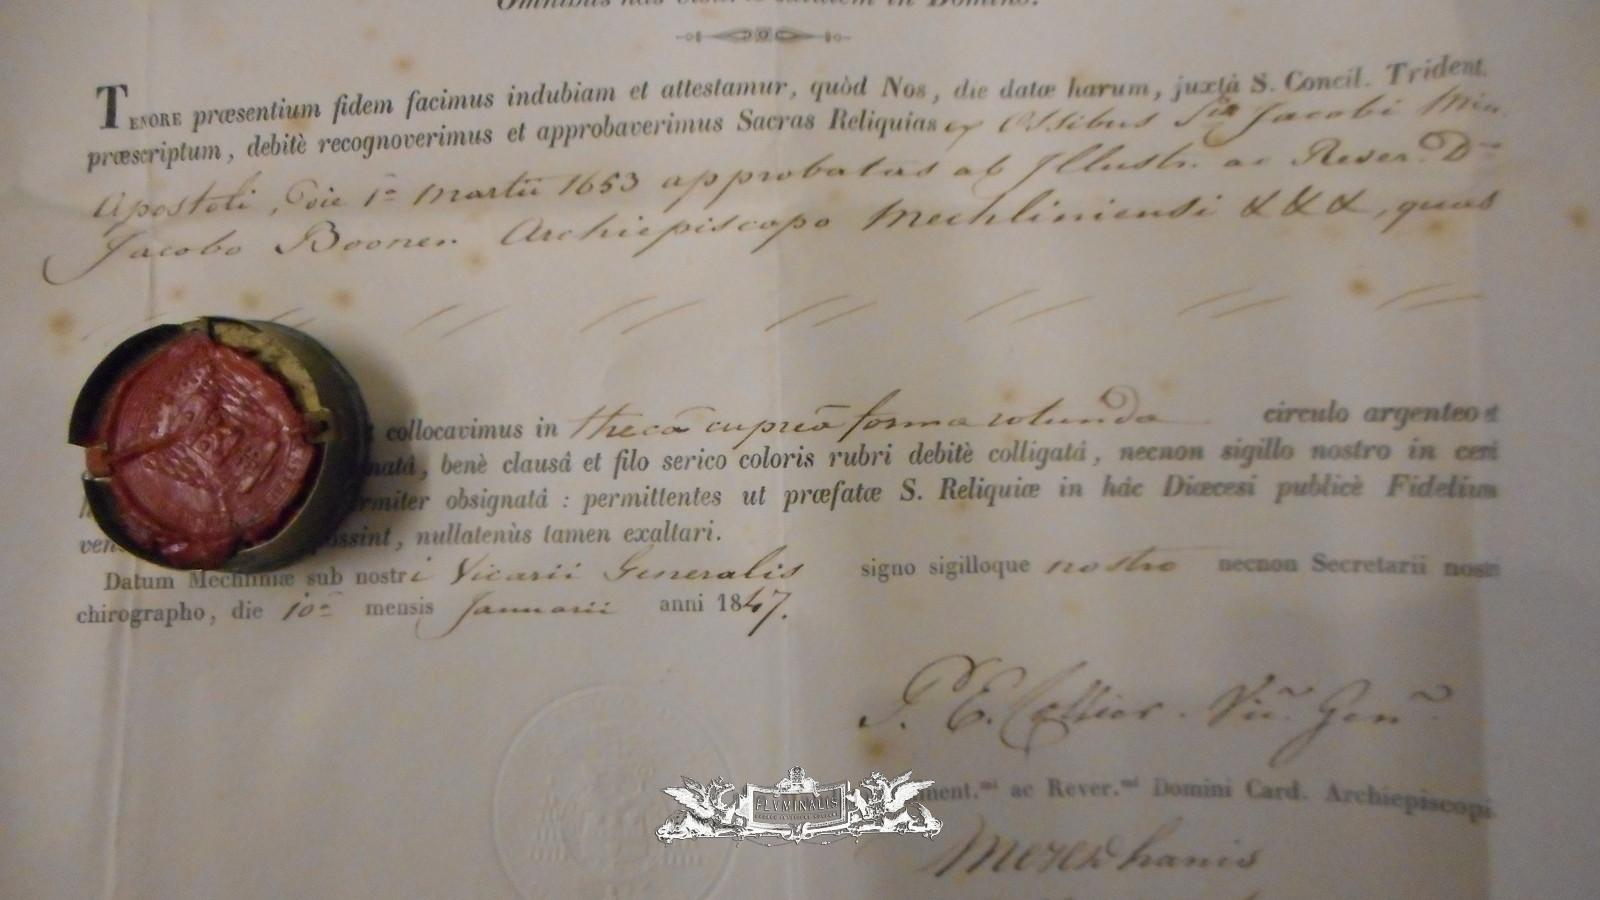 Omnibus has visuris salutem in Domino.
TENORE præsentium fidem facimus indubiam et attestamur, quòd Nos, die datæ harum, juxtà S. Concil. Trident.
præscriptum, debitè recognoverimus et approbaverimus Sacras Reliquias ex Ossibus Sti Jacobi Min.
Apostoli, die 1ª Martii 1653 approbatas ab Illustr. ac Rever. Dno
Jacobo Boonen Archiepiscopo Mechliniensi &&&, quas
collocavimus in thecâ cupreâ forma rotunda circulo argenteo et
natâ, benè clausâ et filo serico coloris rubri debitè colligatâ, necnon sigillo nostro in cerâ
rmiter obsignatâ : permittentes ut præfatæ S. Reliquiæ in hâc Diœcesi publicè Fidelium
ven ossint, nullatenùs tamen exaltari.
Datum Mechliniæ sub nostri Vicarii Generalis signo sigilloque nostro necnon Secretarii nostri
chirographo, die 10ª mensis Januarii anni 1847.
P. E. Vic. Gen.
ment.mi ac Rever.mi Domini Card. Archiepiscopi
FLVMINALIS